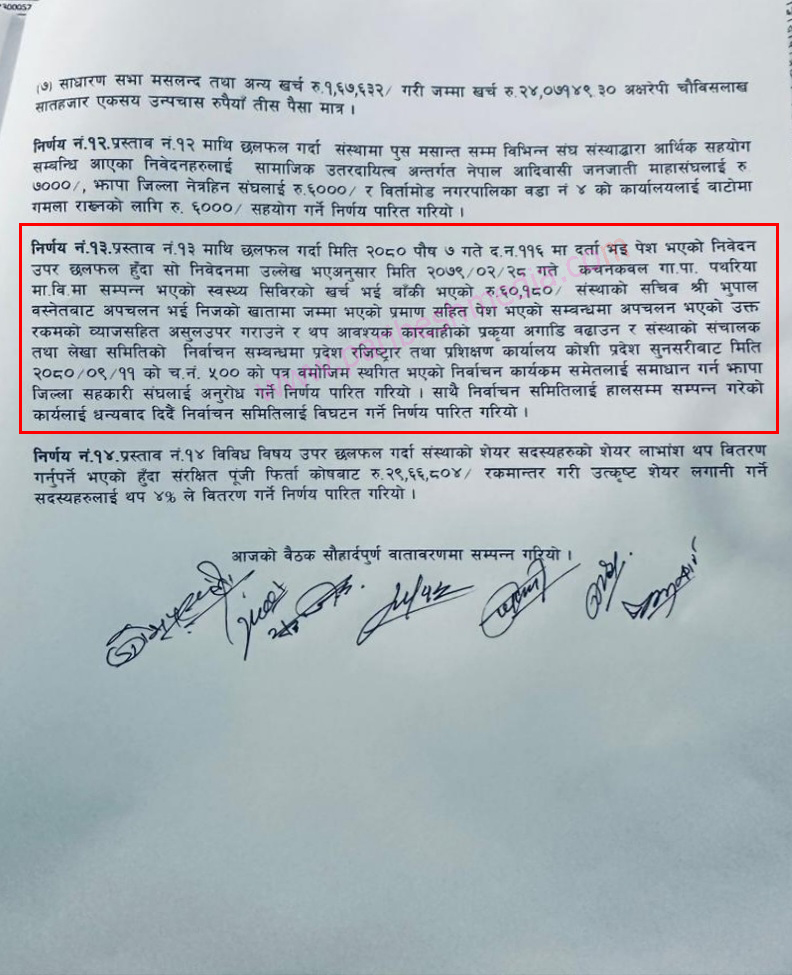 300057
(७) साधारण सभा मसलन्द तथा अन्य खर्च रु.१,६७,६३२/ गरी जम्मा खर्च रु.२४,०७१४९.३० अक्षरेपी चौविसलाख
सातहजार एकसय उन्पचास रुपैयाँ तीस पैसा मात्र ।
निर्णय नं.१२.प्रस्ताव नं.१२ माथि छलफल गर्दा संस्थामा पुस मसान्त सम्म विभिन्न संघ संस्थाद्वारा आर्थिक सहयोग
सम्बन्धि आएका निवेदनहरुलाई सामाजिक उतरदायित्व अन्तर्गत नेपाल आदिवासी जनजाती माहासंघलाई रु
७०००/, झापा जिल्ला नेत्रहिन संघलाई रु.६०००/ र विर्तामोड नगरपालिका वडा नं ४ को कार्यालयलाई वाटोमा
गमला राख्नको लागि रु. ६०००/ सहयोग गर्ने निर्णय पारित गरियो ।
निर्णय नं.१३.प्रस्ताव नं.१३ माथि छलफल गर्दा मिति २०८० पौष ७ गते द.न.११६ मा दर्ता भइ पेश भएको निवेदन
उपर छलफल हुँदा सो निवेदनमा उल्लेख भएअनुसार मिति २०७९/०२/२८ गते कचनकवल गा.पा. पथरिया
मा.वि.मा सम्पन्न भएको स्वस्थ्य सिविरको खर्च भई बाँकी भएको रु.६०,१८०/ संस्थाको सचिव श्री भुपाल
वस्नेतबाट अपचलन भई निजको खातामा जम्मा भएको प्रमाण सहित पेश भएको सम्बन्धमा अपचलन भएको उक्त
रकमको व्याजसहित असुलउपर गराउने र थप आवश्यक कारवाहीको प्रकृया अगाडि वढाउन र संस्थाको संचालक
तथा लेखा समितिको निर्वाचन सम्वन्धमा प्रदेश रजिष्ट्रार तथा प्रशिक्षण कार्यालय कोशी प्रदेश सुनसरीबाट मिति
२०८०/०९/११ को च.नं. ५०० को पत्र वमोजिम स्थगित भएको निर्वाचन कार्यकम समेतलाई समाधान गर्न झापा
जिल्ला सहकारी संघलाई अनुरोध गर्ने निर्णय पारित गरियो । साथै निर्वाचन समितिलाई हालसम्म सम्पन्न गरेको
कार्यलाई धन्यवाद दिदैं निर्वाचन समितिलाई विघटन गर्ने निर्णय पारित गरियो ।
निर्णय नं.१४.प्रस्ताव नं.१४ विविध विषय उपर छलफल गर्दा संस्थाको शेयर सदस्यहरुको शेयर लाभांश थप वितरण
गर्नुपर्ने भएको हुँदा संरक्षित पूंजी फिर्ता कोषबाट रु.२९,६६,८०४/ रकमान्तर गरी उत्कृष्ट शेयर लगानी गर्ने
सदस्यहरुलाई थप ४% ले वितरण गर्ने निर्णय पारित गरियो ।
आजको बैठक सौहार्दपुर्ण वातावरणमा सम्पन्न गरियो ।